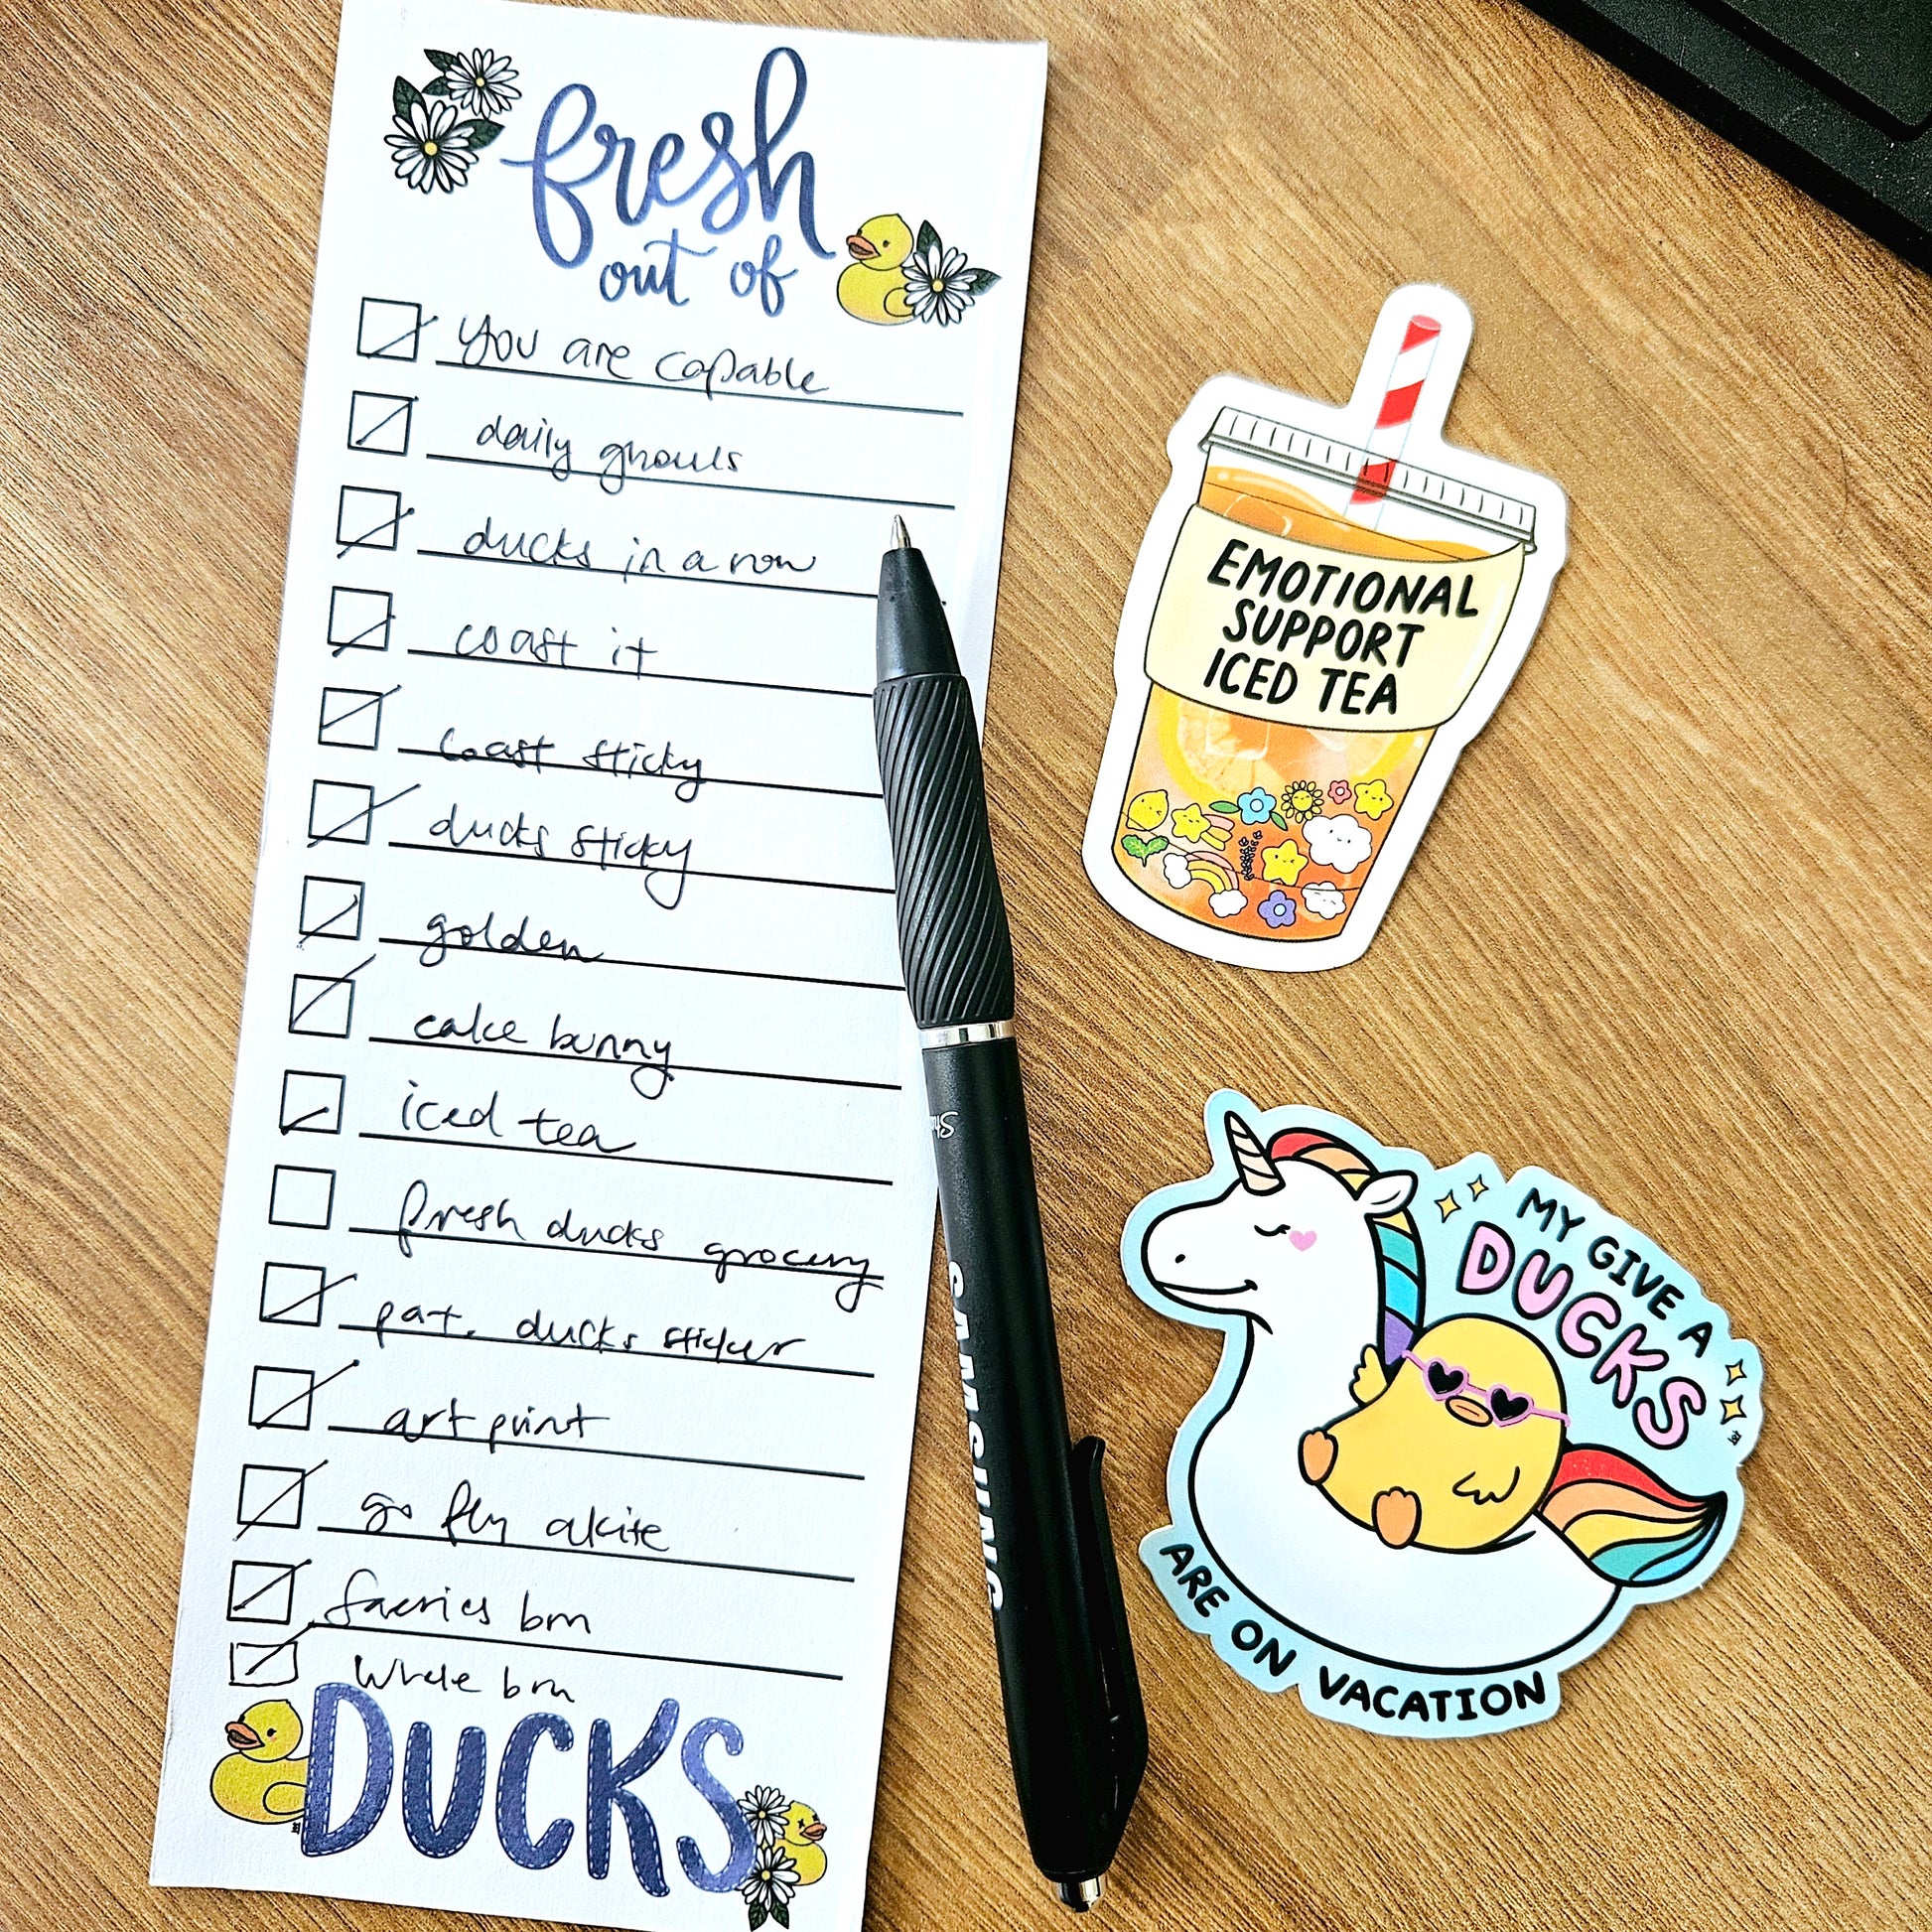 fresh
out of
You are capable
daily ghouls
ducks in a row
coast it
coast sticky
ducks sticky
golden
cake bunny
iced tea
fresh ducks grocery
pat. ducks sticker
art print
go fly a kite
faeries bm
Whole bm
DUCKS
SAMSUNG
EMOTIONAL
SUPPORT
ICED TEA
MY GIVE A
DUCKS
ARE ON VACATION